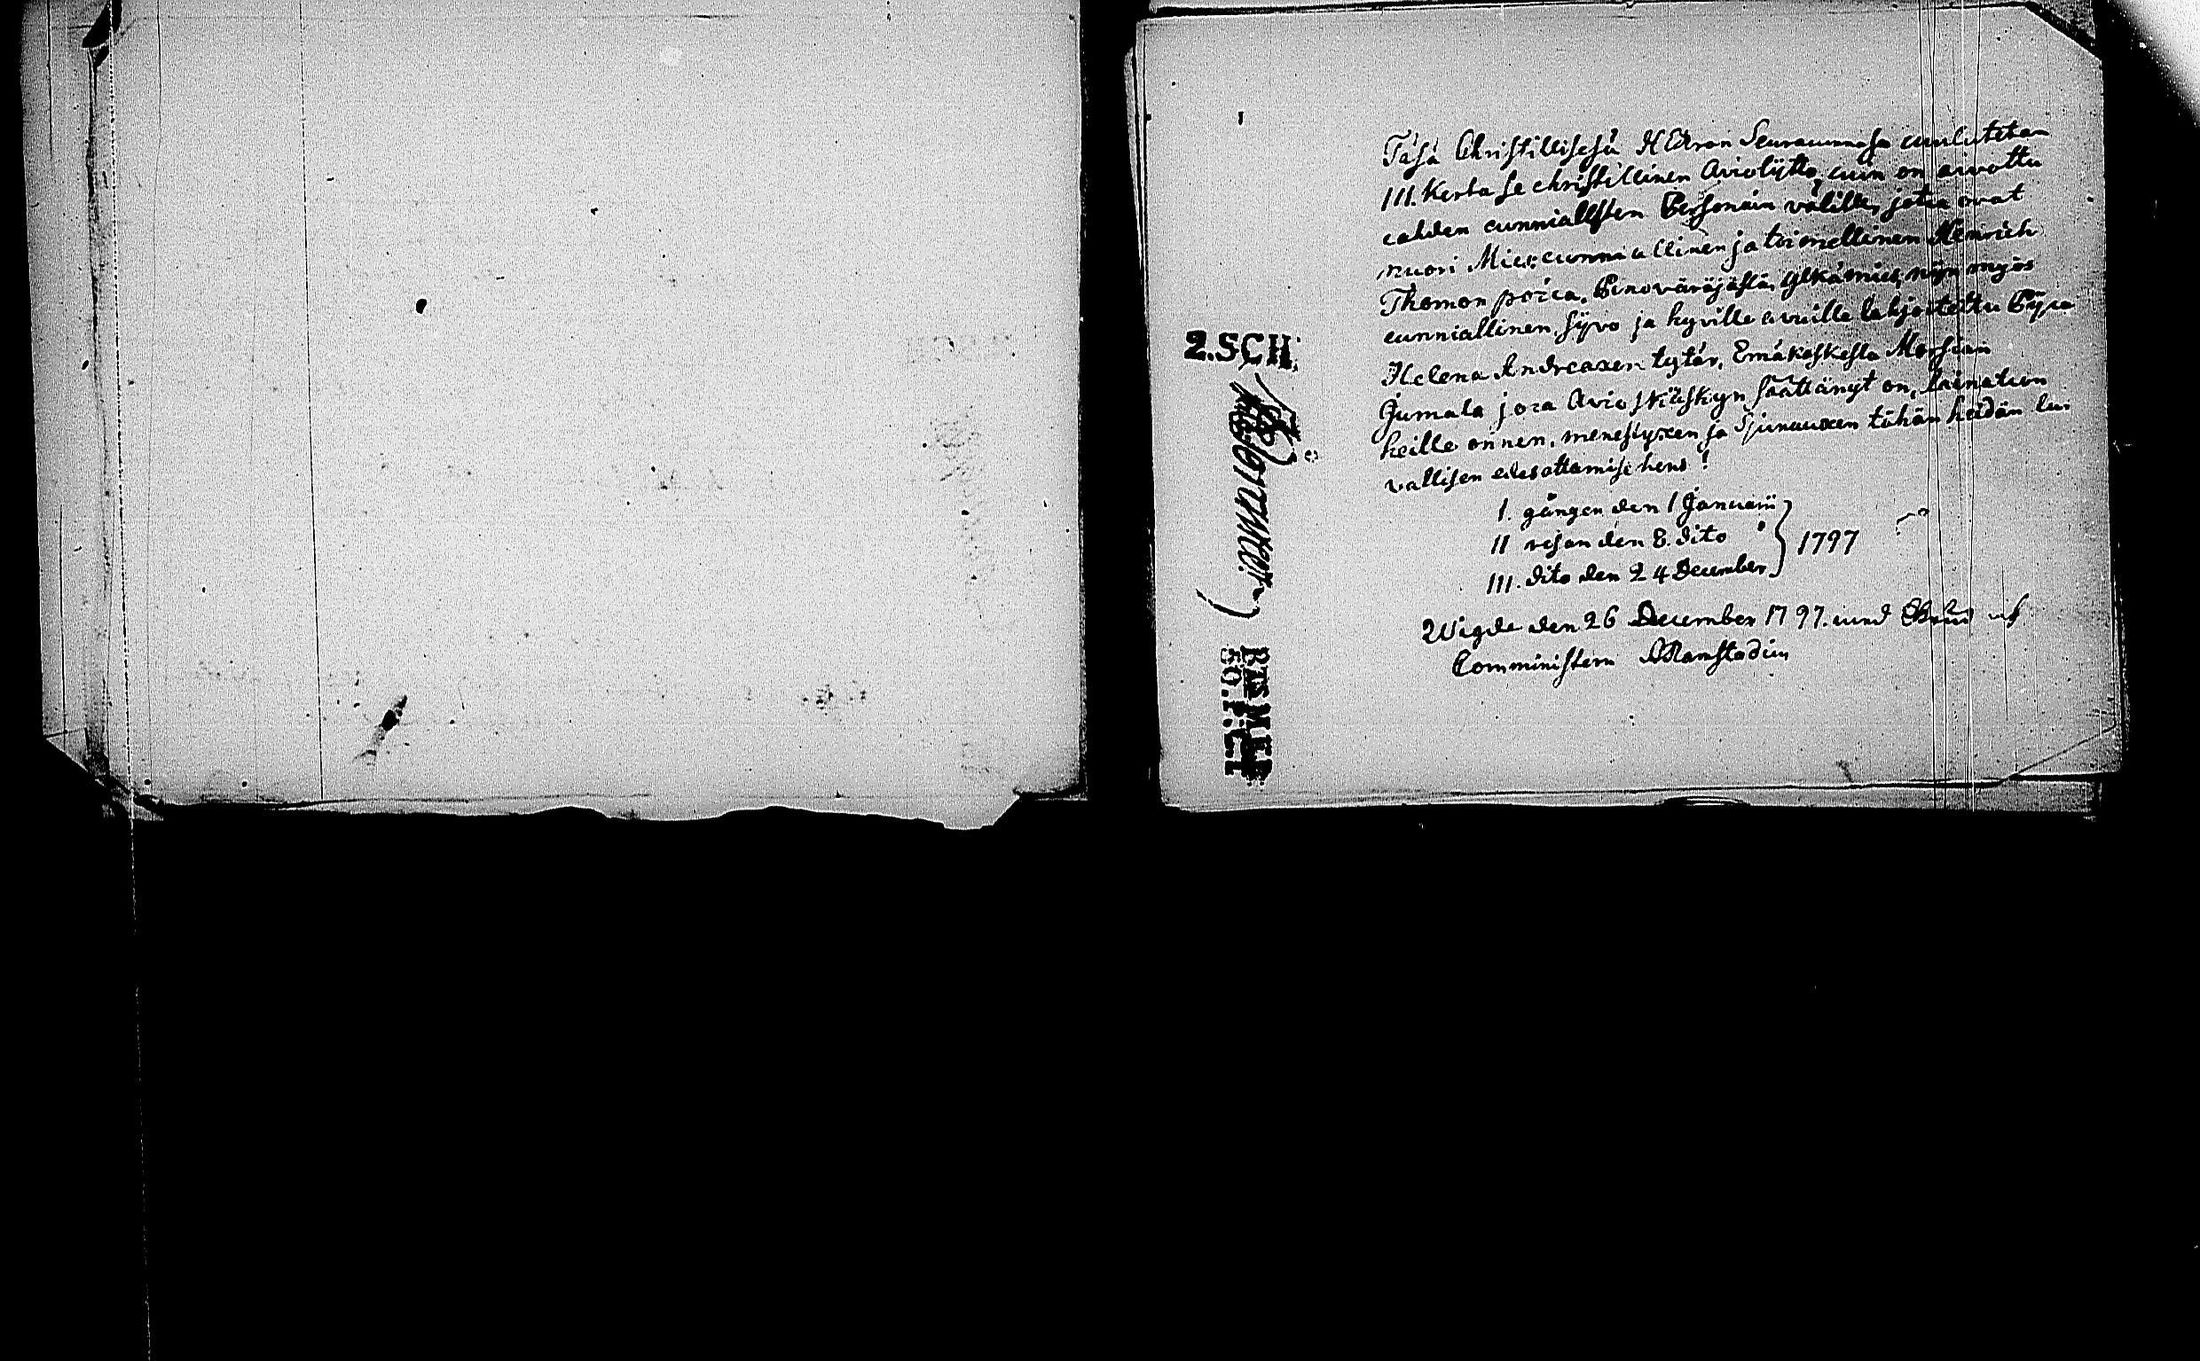 Täsä Christillisesä HErran Seuracunnasa cuulutetan
III. Kerta se christillinen Aviokäsky, cuin on aivottu
cahden cunniallisten Personain välille, jotca ovat
nuori Mies, cunniallinen ja toimellinen Henrich
Thomon poica, Pinovaräjästä, Ylkämies, nijn myös
cunniallinen, sijvo ja hyville avuille lahjoitettu Pijca
Helena Andreaxen tytär, Emäkoskesta Morsian
Jumala joca Avio skiäskyn säättänyt on, lainatcon
heille onnen, menestyxen ja Sjunauxen tähän heidän lu-
vallisen edesottamisehens!
I. gången den 1 Januarii
II resan den 8. dito
III. dito den 24 December
1797
Wigde den 26 December 1797. af
Comministern
2. SCH.